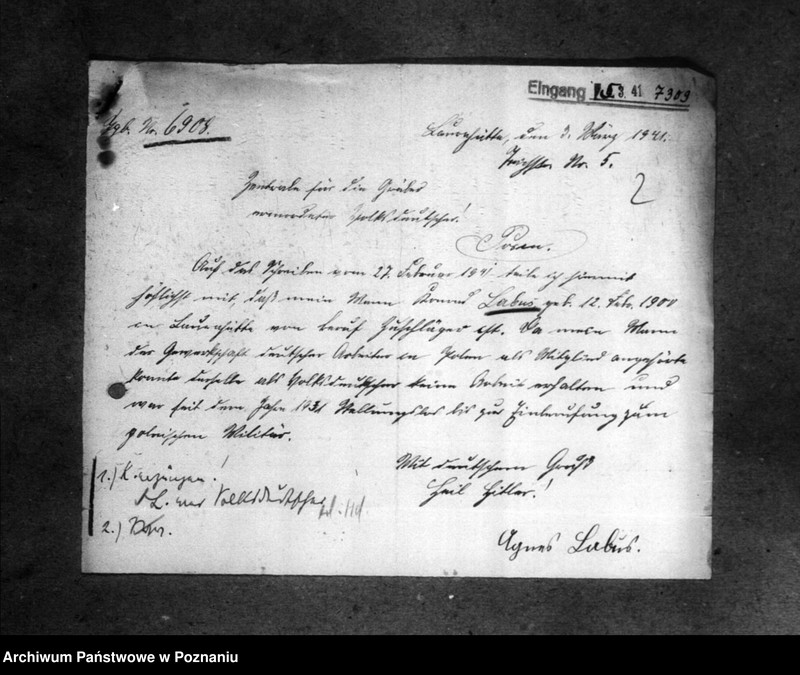 Eingang 5.3.41 7303
Tgb. No. 6908.
Laurahütte, den 3. März 1941.
Nr. 5.
2
Zentrale für die Gräber
ermordeter Volksdeutscher!
Posen.
Auf das Schreiben vom 27. Februar 1941 teile ich hiermit
höflichst mit, daß mein Mann Konrad Labus geb. 12. Febr. 1900
in Laurahütte von Beruf Zuschläger ist. Da mein Mann
der Gewerkschaft deutscher Arbeiter in Polen als Mitglied angehörte
konnte derselbe als Volksdeutscher keine Arbeit erhalten und
war seit dem Jahre 1931 Stellungslos bis zur Einberufung zum
polnischen Militär.
Mit deutschem Gruß
Heil Hitler!
Agnes Labus.
1.) K.
L. war Volksdeutscher
2.)
Archiwum Państwowe w Poznaniu